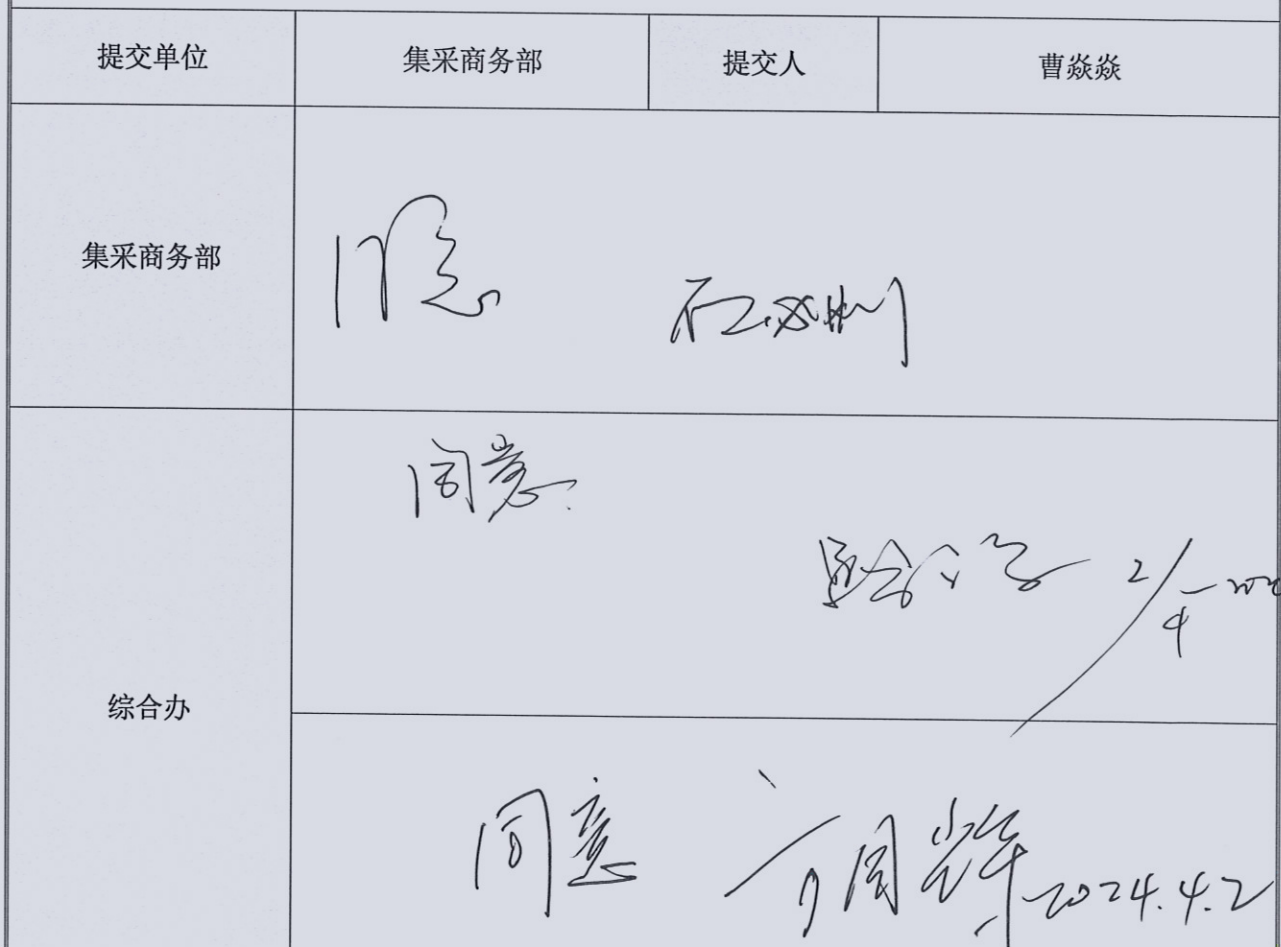 提交单位 集采商务部 提交人 曹焱焱
集采商务部
同意
同意
2/4
综合办
同意 2024.4.2